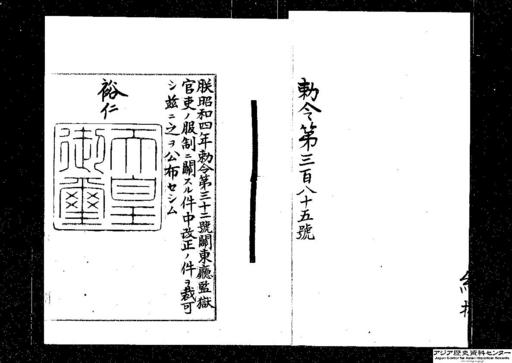 勅令第三百八十五號
朕昭和四年勅令第三十二號關東廳監獄
官吏ノ服制ニ關スル件中改正ノ件ヲ裁可
シ茲ニ之ヲ公布セシム
裕仁
天皇
御璽
アジア歴史資料センター
Japan Center for Asian Historical Records